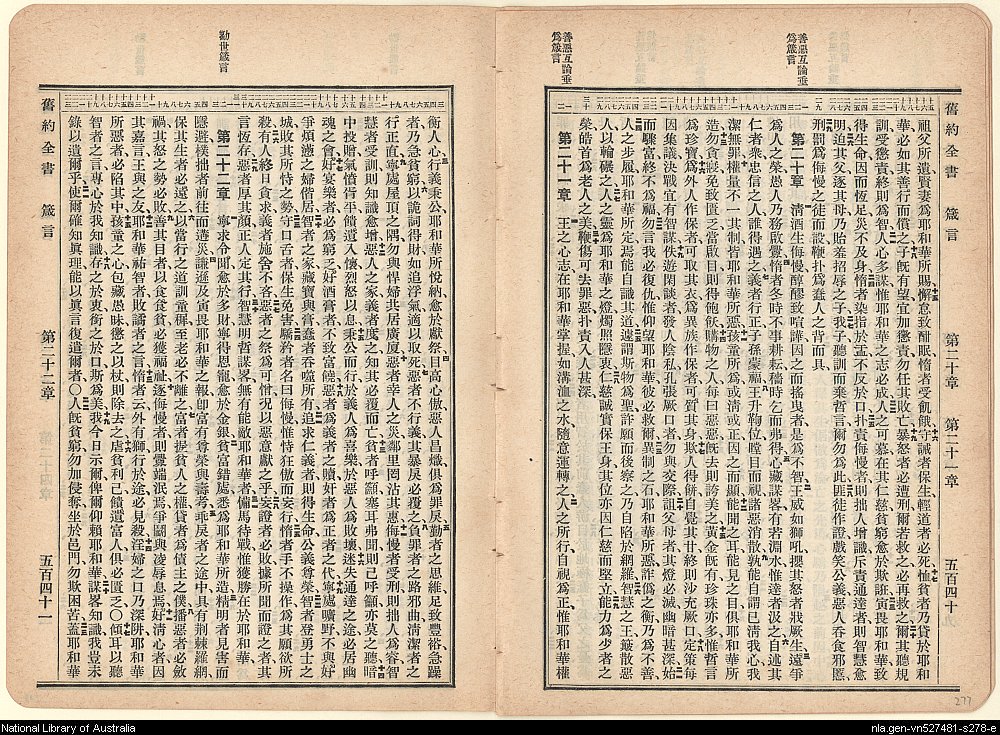 善惡互論垂
為箴言
善惡互論垂
為箴言
舊約全書 箴言 第二十章 第二十一章 五百四十
祖父所遺賢妻為耶和華所賜懈怠致酣眠惰者受飢餓守誡者保生輕道者必死恤貧者乃貸於耶和
華必如其善行而償之子旣有望宜加懲責勿任其敗亡暴怒者必遭刑爾若救之必再救之爾其聽規
訓受懲責終則為智人心多謀惟耶和華之志必成人之可慕在其仁慈貧窮愈於欺誑寅畏耶和華致
得生命因而恆足災不及身惰者染指於盂不反於口扑責侮慢者則拙人增識斥責通達者則智慧愈
明迫其父逐其母乃貽羞招辱之子我子聽訓而棄哲言爾勿為此匪徒作證戲笑公義惡人吞食邪慝
刑罰為侮慢之徒而設鞭扑為蠢人之背而具
第二十章 清酒生侮慢醇醪致喧譁因之而搖曳者是為不智王威如獅吼攖其怒者戕厥生遠爭
為人之榮愚人乃務啟釁惰者冬時不事耕耘穡時乞而弗得心藏謀畧有若淵水惟達者汲之自述其
仁者人衆忠信之人誰得遇之義者行正子孫蒙福王升物位瞠目而視諸惡消散孰能自謂已清我心我
潔無罪權量不一其制皆耶和華所惡孩童所為或清或正因之而顯能聞之耳能見之目俱耶和華所
造勿貪寢免致匱乏當啟目則得飽飫購物之人每曰惡惡旣去則誇美之黃金旣有珍珠亦多惟哲言
為珍寶為外人作保者可取其衣為異族作保者可質其身欺人得餅自覺其甘終則沙充厥口定策每
因集議決戰宜有智謀佚遊閑談者發人陰私孔張厥口者勿與交際詛父母者其燈必滅幽暗甚深始
而驟富終不為福勿言我必復仇惟仰望耶和華彼必救爾異制之石耶和華所惡詐僞之衡乃為不善
人之步履耶和華所定焉能自識其道遽謂斯物為聖許願而後察之乃自陷於網羅智慧之王簸散惡
人以輪碾之人之靈為耶和華之燈燭照隱衷仁慈誠實保王身其位亦因仁慈而堅立能力為少者之
榮皓首為老人之美鞭傷可去罪惡扑責入人甚深
第二十一章 王之心志在耶和華掌握如溝洫之水隨意運轉之人之所行自視為正惟耶和華權
勸世箴言
衡人心行義秉公耶和華所悅納愈於獻祭目高心傲惡人昌熾俱為罪戾勤者之思維足致豐裕急躁
者乃急貧窮以詭詞得財如追浮氣適以取死惡者不行義其暴戾必覆之負罪者之路邪曲清潔者之
行正直寧處屋頂之隅勿與悍婦共居廣廈惡者幸人之災鄰里罔沾其惠侮慢者受刑則拙人為睿智
慧者受訓則知識愈增惡人之家義者度之知其必覆而亡貧者呼籲塞耳弗聞則己呼籲亦莫之聽暗
中投贈氣憤胥平懷餽遺人懷烈怒以息秉公而行於義人為喜樂於惡人為敗壞迷失通達之途必居幽
魂之會好宴樂者必為窮乏好酒膏者不致富饒惡者為義者之贖奸者為正者之代寧處曠野不與好
爭煩懣之婦偕居智者之家藏寶與膏蠢者吞噬所有追求仁義者則得生命公義尊榮智者登勇士之
城敗其所恃之勢守口舌者保生免害驕矜者名曰侮慢惟恃狂傲而妄行惰者手不操作為其願欲所
殺有人終日貪求義者施舍不客惡者之祭為可憎况以惡意獻之乎妄證者必敗據所聞而證之者其
言恆存惡者厚其顏正人定其行智慧明哲謀畧無有能敵耶和華者備馬待戰惟獲勝在於耶和華
第二十二章 寧求令聞愈於多財寧得恩寵愈於金銀貧富錯處悉為耶和華所造精明者見害而
隱避樸拙者前往而遘災謙遜及寅畏耶和華之報卽富有尊榮與壽考乖戾者之途中具有荆棘羅網
保其生者必遠之以當行之道訓童穉至老必不離之富者操貧人之權貸者為債主之僕播惡者必斂
禍其怒之勢必敗善其目者以食食貧必獲福祉逐侮慢者則釁端泯焉爭鬬與凌辱息焉好清心者因
其嘉言王與之友耶和華祐智者敗譎者之言惰者云外有獅行於途必見殺淫婦之口乃深阱耶和華
所惡者必陷其中孩童之心包藏愚昧懲之以杖則除去之虐貧利己餽遺富人俱必匱乏〇傾耳以聽
智者之言專心於我知識存之於衷衛之於口斯為美我今日示爾俾爾仰賴耶和華謀畧知識我豈未
錄以遺爾乎使爾確知眞理能以眞言復遣爾者〇人旣貧窮勿加侵奪坐於邑門勿欺困苦蓋耶和華
舊約全書 箴言 第二十二章 五百四十一
277
National Library of Australia
nla.gen-vn527481-s278-e